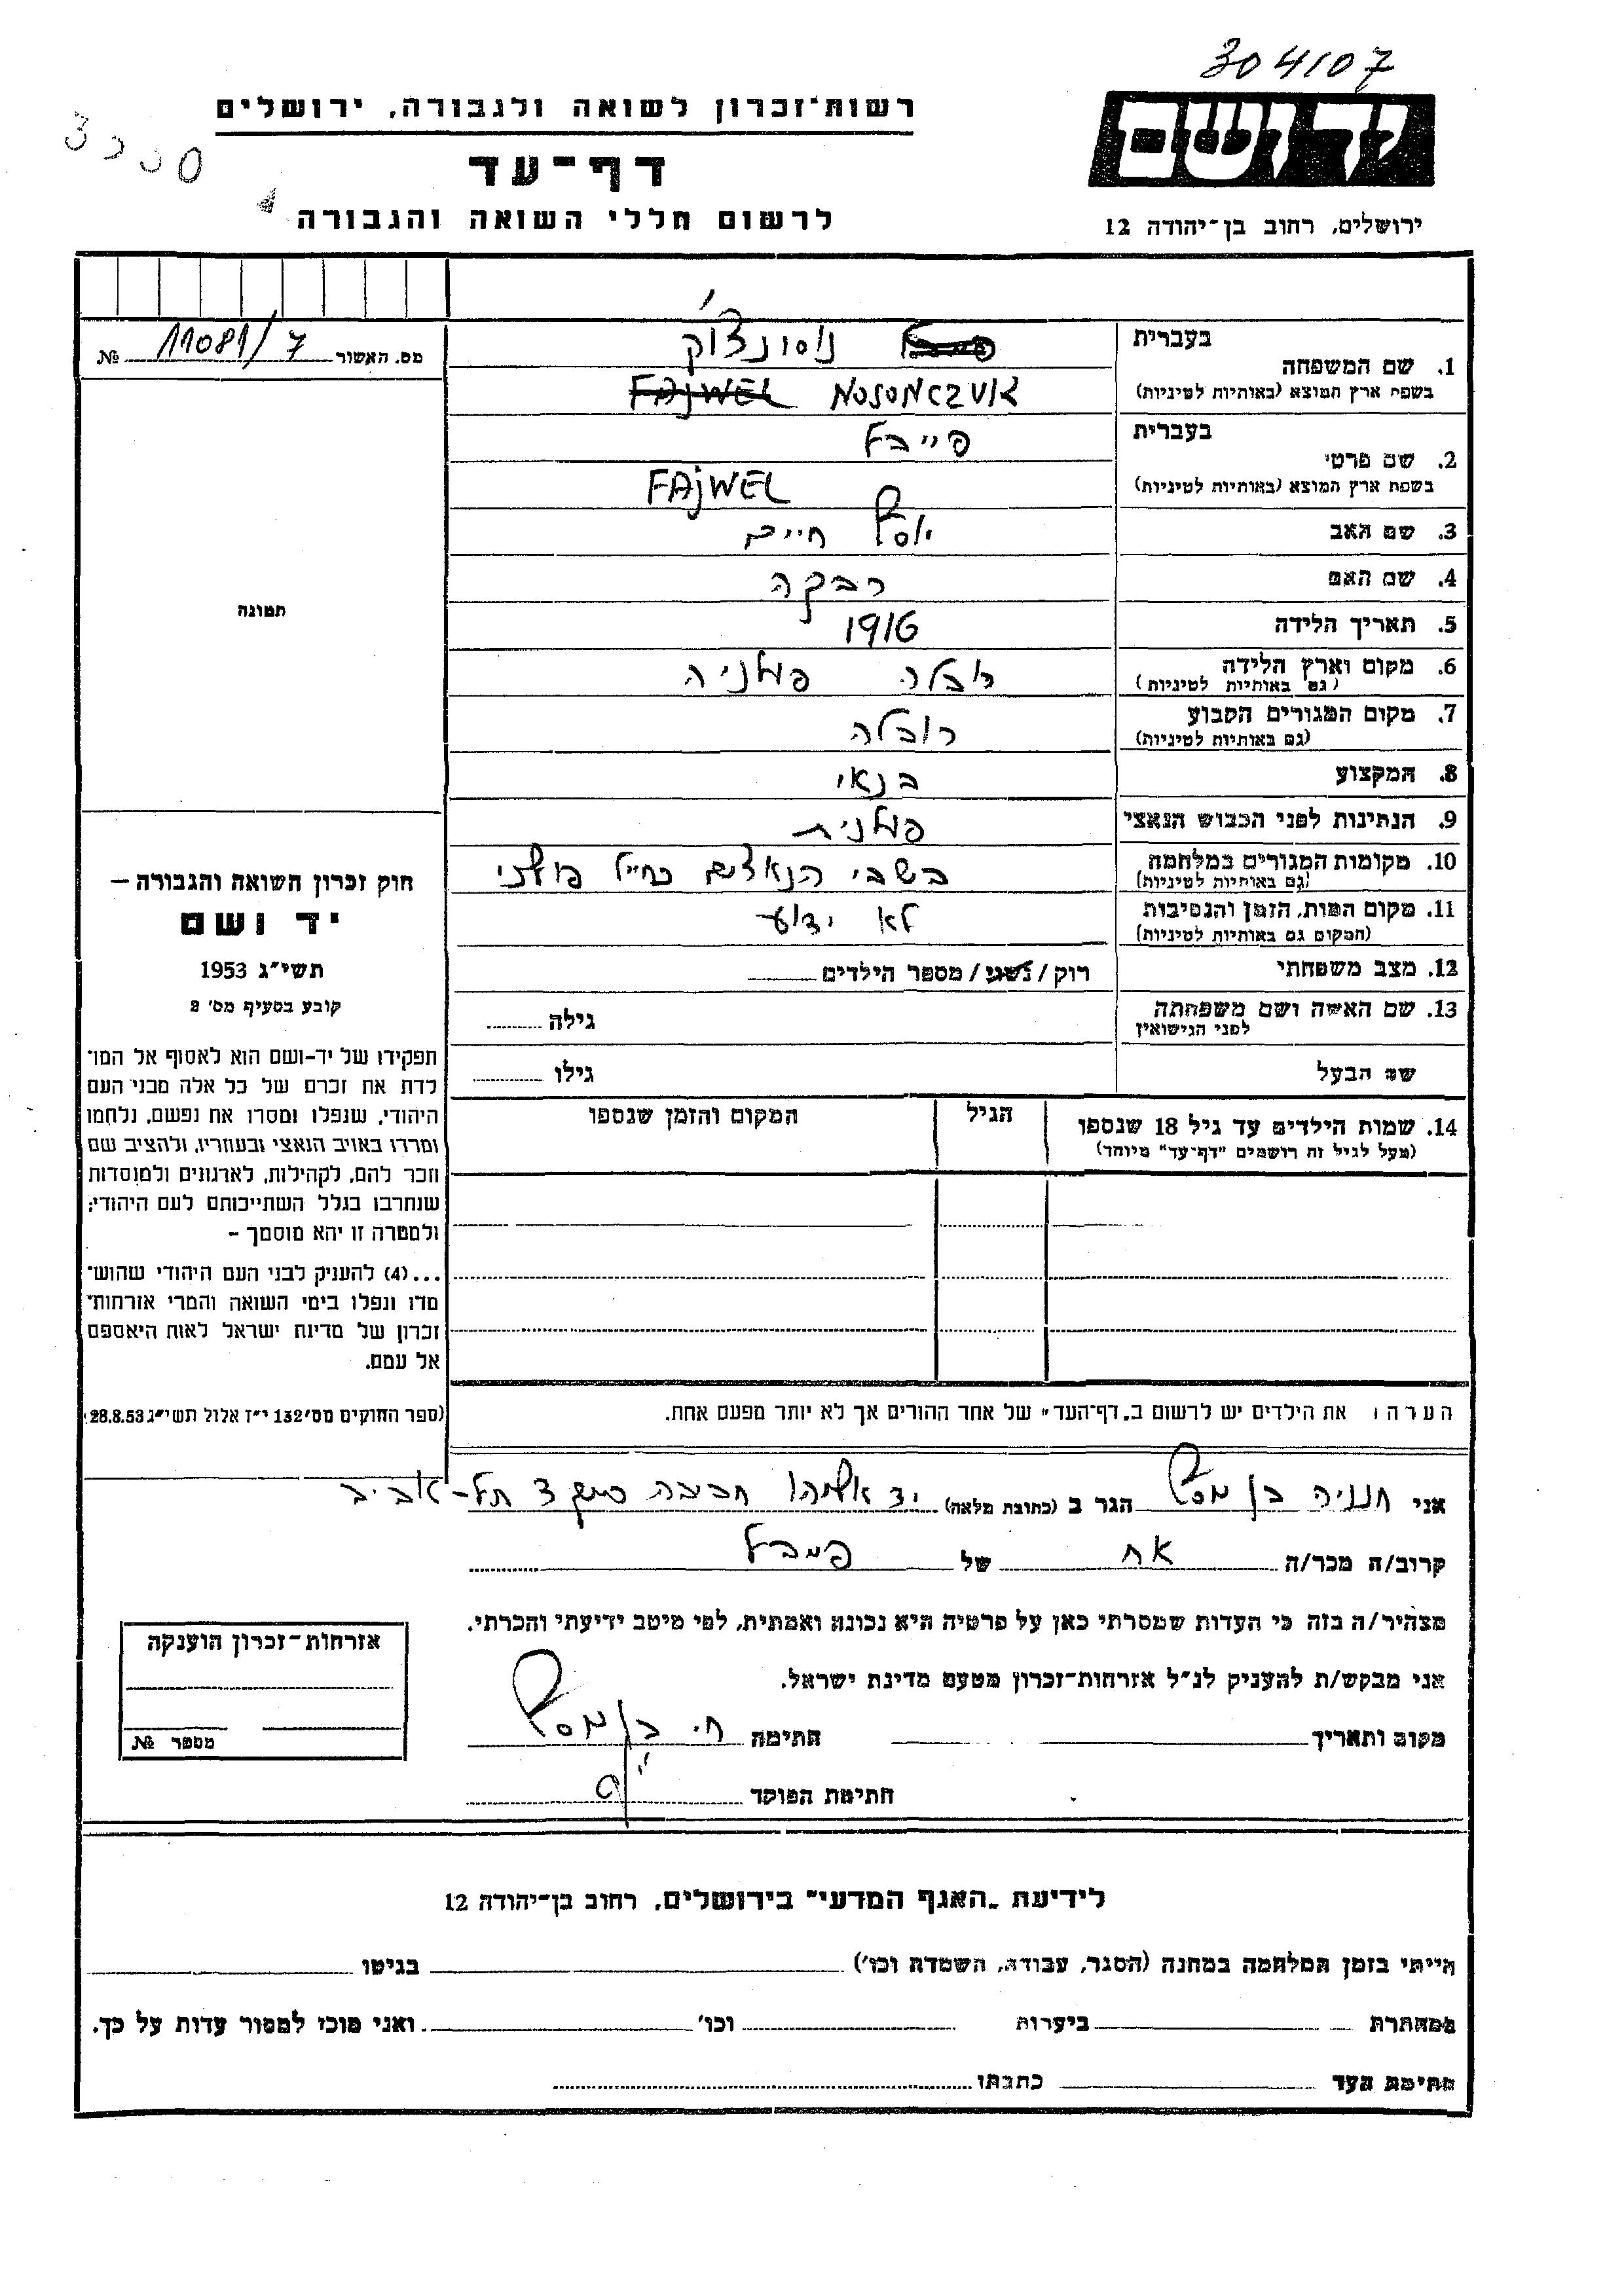 304107
רשות־זכרון לשואה ולגבורה, ירושלים
ידושם
דף־עד
לרשום חללי השואה והגבורה
ירושלים, רחוב בן־יהודה 12
מס. האשור 11081/7 №
בעברית
1. שם המשפחה נוסונצ'וק
בשפת ארץ המוצא (באותיות לטיניות) FAJWEL NOSONCZUK
בעברית
2. שם פרטי פייבל
בשפת ארץ המוצא (באותיות לטיניות) FAJWEL
3. שם האב יוסף חיים
4. שם האם רבקה
תמונה
5. תאריך הלידה 1916
6. מקום וארץ הלידה פולניה
(גם באותיות לטיניות)
7. מקום המגורים הקבוע רובלה
(גם באותיות לטיניות)
8. המקצוע בנאי
9. הנתינות לפני הכבוש הנאצי פולנית
10. מקומות המגורים במלחמה בשבי הנאצים כחייל פולני
(גם באותיות לטיניות)
11. מקום המות, הזמן והנסיבות לא ידוע
(המקום גם באותיות לטיניות)
12. מצב משפחתי רוק / נשוי / מספר הילדים
13. שם האשה ושם משפחתה גילה
לפני הנישואין
שם הבעל גילו
14. שמות הילדים עד גיל 18 שנספו הגיל המקום והזמן שנספו
(מעל לגיל זה רושמים "דף־עד" מיוחד)
חוק זכרון השואה והגבורה —
יד ושם
תשי"ג 1953
קובע בסעיף מס' 2
תפקידו של יד-ושם הוא לאסוף אל המו־
לדת את זכרם של כל אלה מבני העם
היהודי, שנפלו ומסרו את נפשם, נלחמו
ומרדו באויב הנאצי ובעוזריו, ולהציב שם
וזכר להם, לקהילות, לארגונים ולמוסדות
שנחרבו בגלל השתייכותם לעם היהודי;
ולמטרה זו יהא מוסמך —
...(4) להעניק לבני העם היהודי שהוש־
מדו ונפלו בימי השואה והמרי אזרחות־
זכרון של מדינת ישראל לאות היאספם
אל עמם.
(ספר החוקים מס' 132 י"ז אלול תשי"ג 28.8.53)
הערה: את הילדים יש לרשום ב„דף־העד" של אחד ההורים אך לא יותר מפעם אחת.
אני חנניה בן יוסף הגר ב (כתובת מלאה) יד אליהו תל-אביב
קרוב/ה מכר/ה אח של פייבל
מצהיר/ה בזה כי העדות שמסרתי כאן על פרטיה היא נכונה ואמתית, לפי מיטב ידיעתי והכרתי.
אני מבקש/ת להעניק לנ"ל אזרחות־זכרון מטעם מדינת ישראל.
מקום ותאריך חתימה ח. בן יוסף
חתימת הפוקד
אזרחות־זכרון הוענקה
מספר №
לידיעת „האגף המדעי" בירושלים, רחוב בן־יהודה 12
הייתי בזמן המלחמה במחנה (הסגר, עבודה, השמדה וכו') בגיטו
במחתרת ביערות וכו' ואני מוכן למסור עדות על כך.
חתימת העד כתבתו